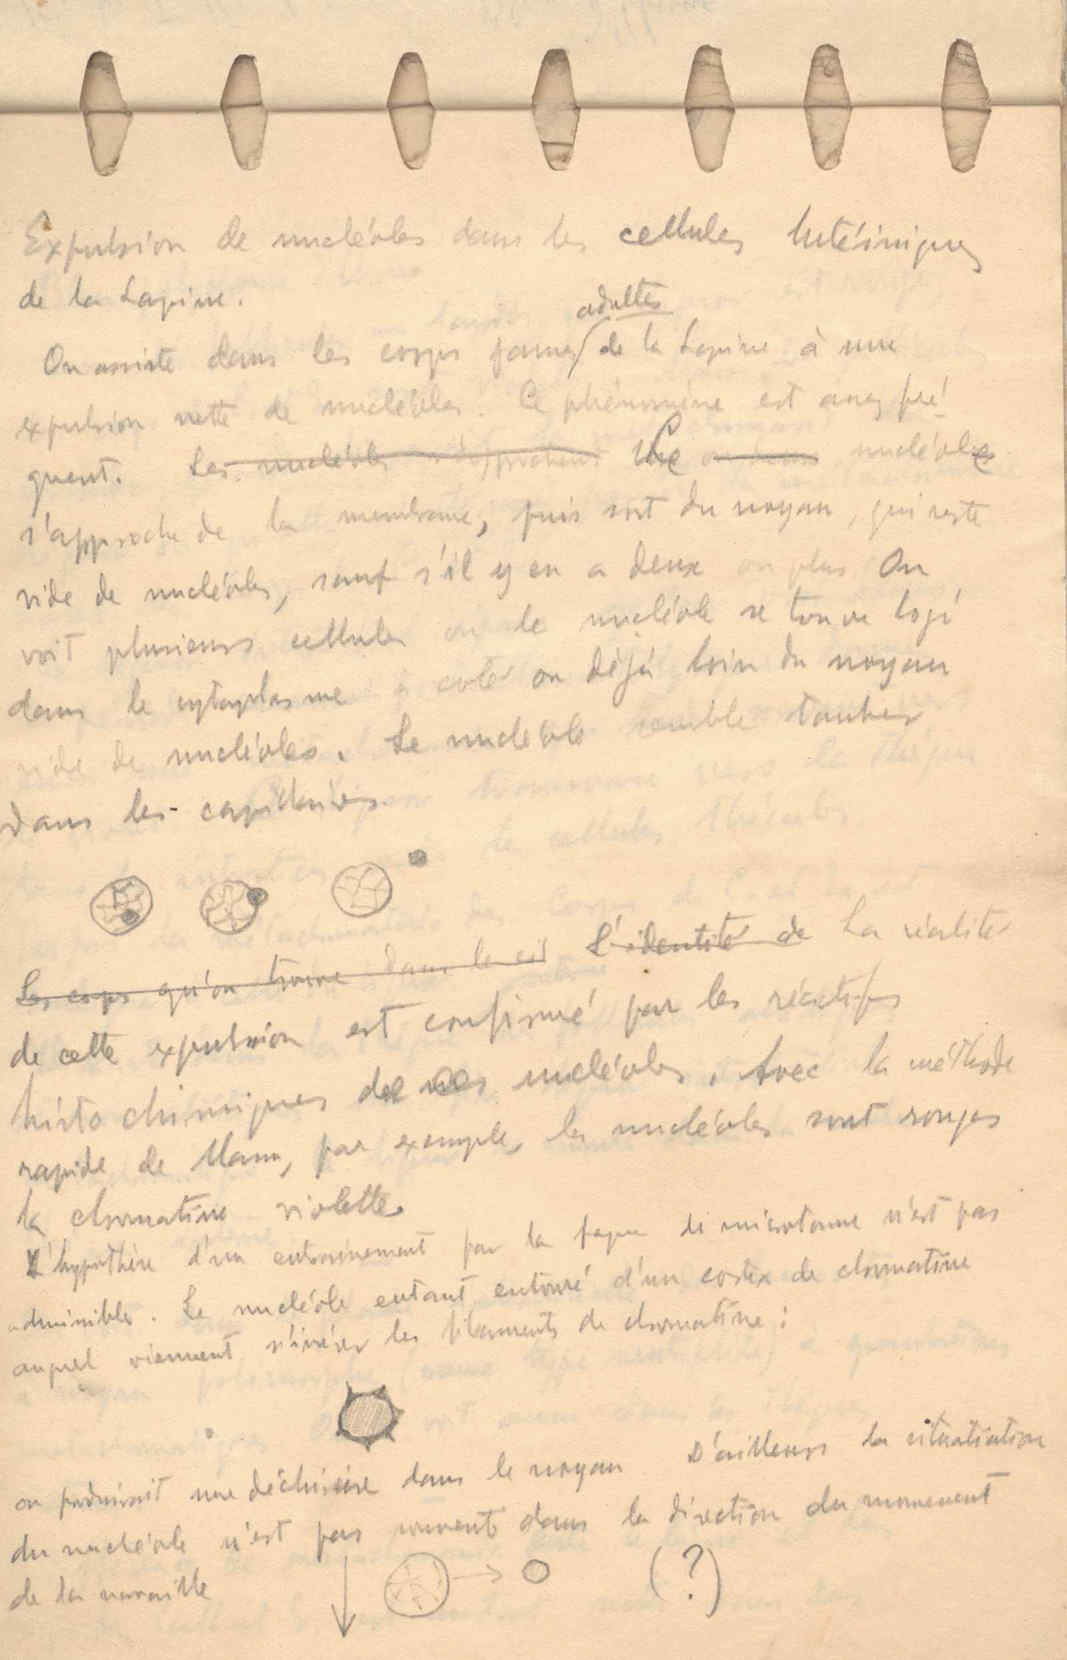 Expulsion de nucléoles dans les cellules lutéiniques
de la Lapine.
adultes
On assiste dans les corps jaunes de la Lapine à une
expulsion nette de nucléoles. Ce phénomène est assez fré
quent. Les nucléoles s'approchent Une nucléole
s'approche de la membrane, puis sort du noyau, qui reste
vide de nucléoles, sauf s'il y en a deux ou plus On
voit plusieurs cellules où le nucléole se trouve logé
dans le cytoplasme à coté ou déjà loin du noyau
vide de nucléoles. Le nucléole semble tomber
dans les capillaires
Les corps qu'on trouve dans les L'identité de La réalité
de cette expulsion est confirmé par les réactifs
histochimiques de nucléoles. Avec la méthode
rapide de Mann, par exemple, les nucléoles sont rouges
la chromatine violette.
L'hypothèse d'un entrainement par la façon de microtome n'est pas
admissible. Le nucléole entant entouré d'un cortex de chromatine
auquel viennent s'insérer les filaments de chromatine :
on produirait une déchirure dans le noyau D'ailleurs la situatiation
du nucléole n'est pas souvent dans la direction du mouvement
de la
(?)